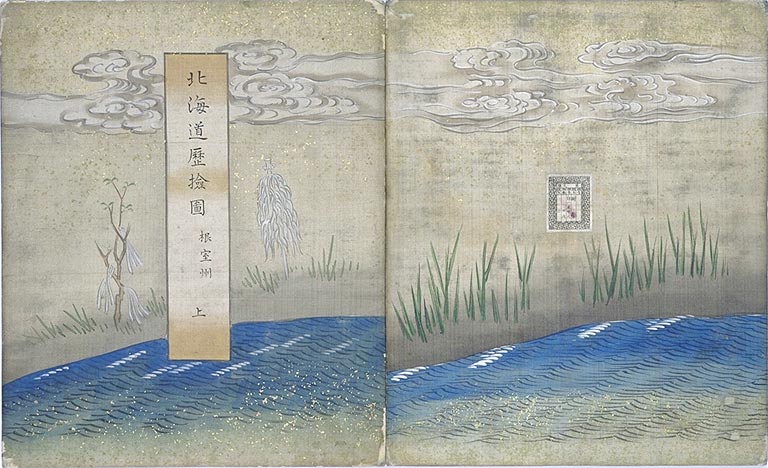 北海道歷撿圖
根室州
上